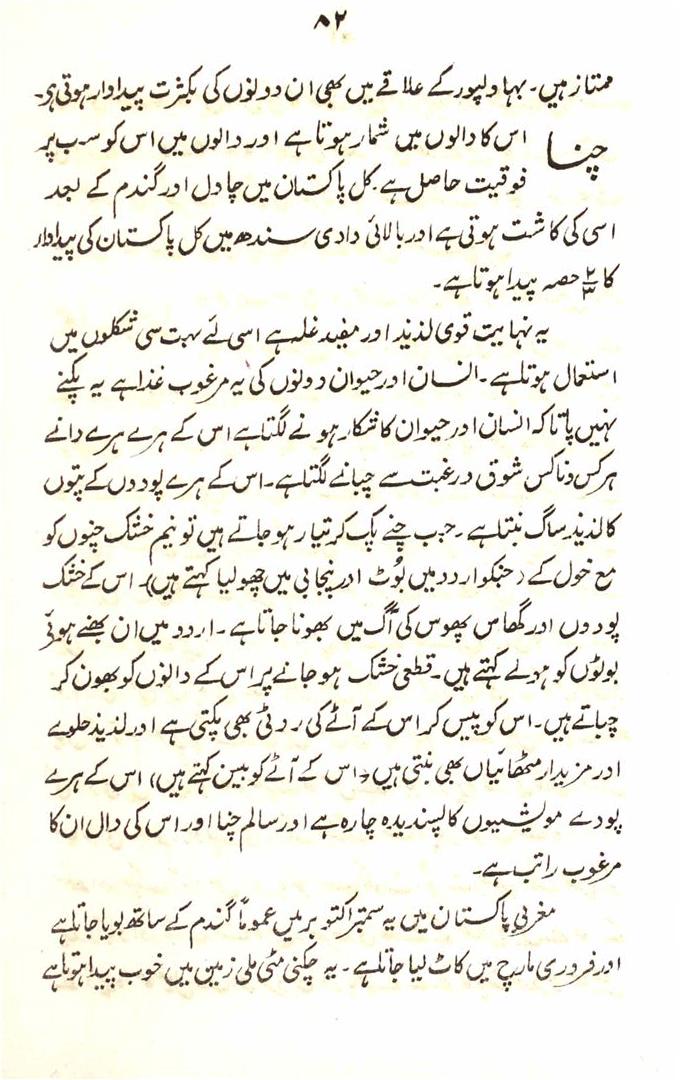 ۸۲
ممتاز ہیں۔ بہاولپور کے علاقے میں بھی ان دونوں کی بکثرت پیداوار ہوتی ہی۔
چنا
اس کا دالوں میں شمار ہوتا ہے اور دالوں میں اس کو سب پر
فوقیت حاصل ہے۔ کل پاکستان میں چاول اور گندم کے بعد
اسی کی کاشت ہوتی ہے اور بالائی وادی سندھ میں کل پاکستان کی پیداوار
کا ۲/۳ حصہ پیدا ہوتا ہے۔
یہ نہایت قوی لذیذ اور مفید غلہ ہے اسی لئے بہت سی شکلوں میں
استعمال ہوتا ہے۔ انسان اور حیوان دونوں کی یہ مرغوب غذا ہے یہ پکنے
نہیں پاتا کہ انسان اور حیوان کا شکار ہونے لگتا ہے اس کے ہرے ہرے دانے
ہر کس و ناکس شوق و رغبت سے چبانے لگتا ہے۔ اس کے ہرے پودوں کے پتوں
کا لذیذ ساگ بنتا ہے۔ جب چنے پک کر تیار ہو جاتے ہیں تو نیم خشک چنوں کو
مع خول کے (جنکو اردو میں بُوٹ اور پنجابی میں چھولیا کہتے ہیں) اس کے خشک
پودوں اور گھاس پھوس کی آگ میں بھونا جاتا ہے۔ اردو میں ان بھنے ہوئے
بوٹوں کو ہولے کہتے ہیں۔ قطعی خشک ہو جانے پر اس کے دانوں کو بھون کر
چباتے ہیں۔ اس کو پیس کر اس کے آٹے کی روٹی بھی پکتی ہے اور لذیذ حلوے
اور مزیدار مٹھائیاں بھی بنتی ہیں (اس کے آٹے کو بیسن کہتے ہیں) اس کے ہرے
پودے مویشیوں کا پسندیدہ چارہ ہے اور سالم چنا اور اس کی دال ان کا
مرغوب راتب ہے۔
مغربی پاکستان میں یہ ستمبر اکتوبر میں عموماً گندم کے ساتھ بویا جاتا ہے
اور فروری مارچ میں کاٹ لیا جاتا ہے۔ یہ چکنی مٹی ملی زمین میں خوب پیدا ہوتا ہے